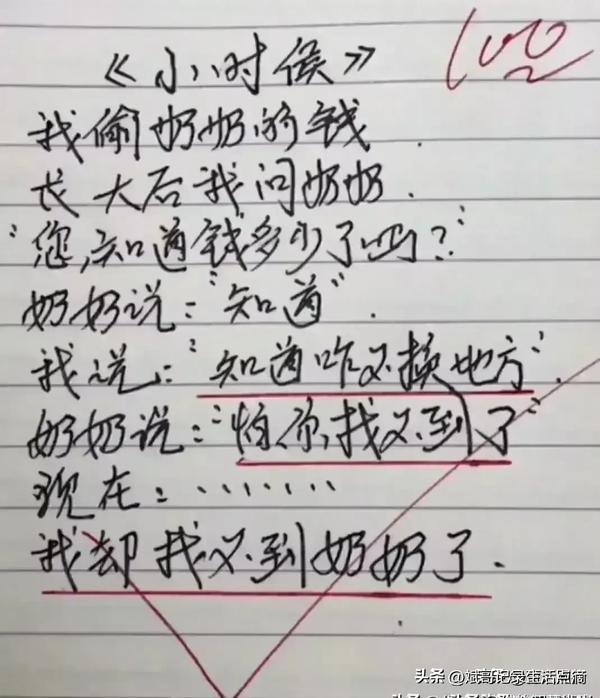 100
《小时侯》
我偷奶奶的钱.
长大后我问奶奶.
"您,知道钱多少了吗?"
奶奶说:"知道".
我说:"知道咋不换地方".
奶奶说:"怕你找不到了"
现在:.......
我却找不到奶奶了.
头条 @斌哥记录生活点滴